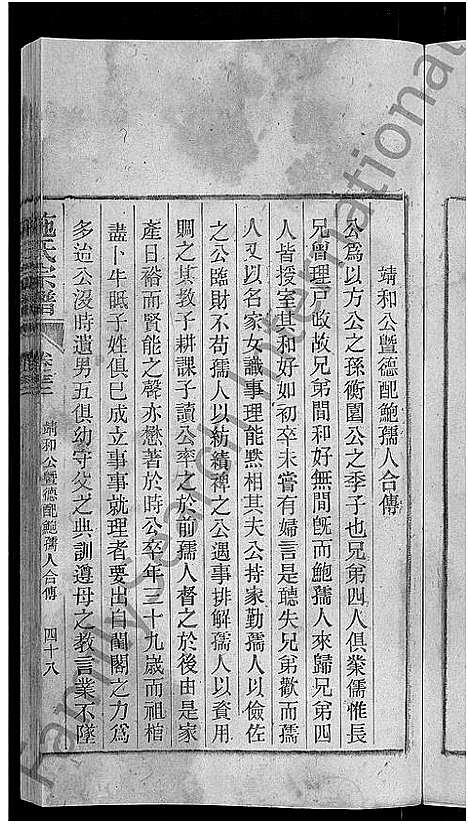 靖和公曁德配鮑孺人合傳
公爲以方公之孫衡園公之季子也兄弟四人俱業儒惟長
兄曾理戸政故兄弟間和好無間旣而鮑孺人來歸兄弟四
人皆授室其和好如初卒未嘗有婦言是聽失兄弟歡而孺
人又以名家女識事理能黙相其夫公持家勤孺人以儉佐
之公臨財不苟孺人以紡績裨之公遇事排解孺人以資用
賙之其教子耕課子讀公率之於前孺人督之於後由是家
產日裕而賢能之聲亦懋著於時公卒年三十九歲而祖棺
盡卜牛眠子姓俱已成立事事就理者要出自閨閣之力爲
多迨公沒時遺男五俱幼守父之典訓遵母之教言業不墜
施氏宗譜 卷三 靖和公曁德配鮑孺人合傳 四十八
FamilySearch International